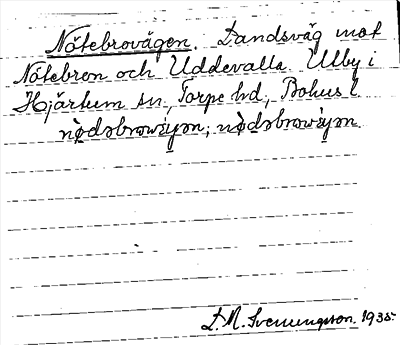 Nötebrovägen. Landsväg mot
Nötebron och Uddevalla. Ulby i
Hjärtum sn, Torpe hd, Bohus l
nø̀dəbrowèyən; nø̀dəbrowèyən.
L. M. Svenungsson. 1935.